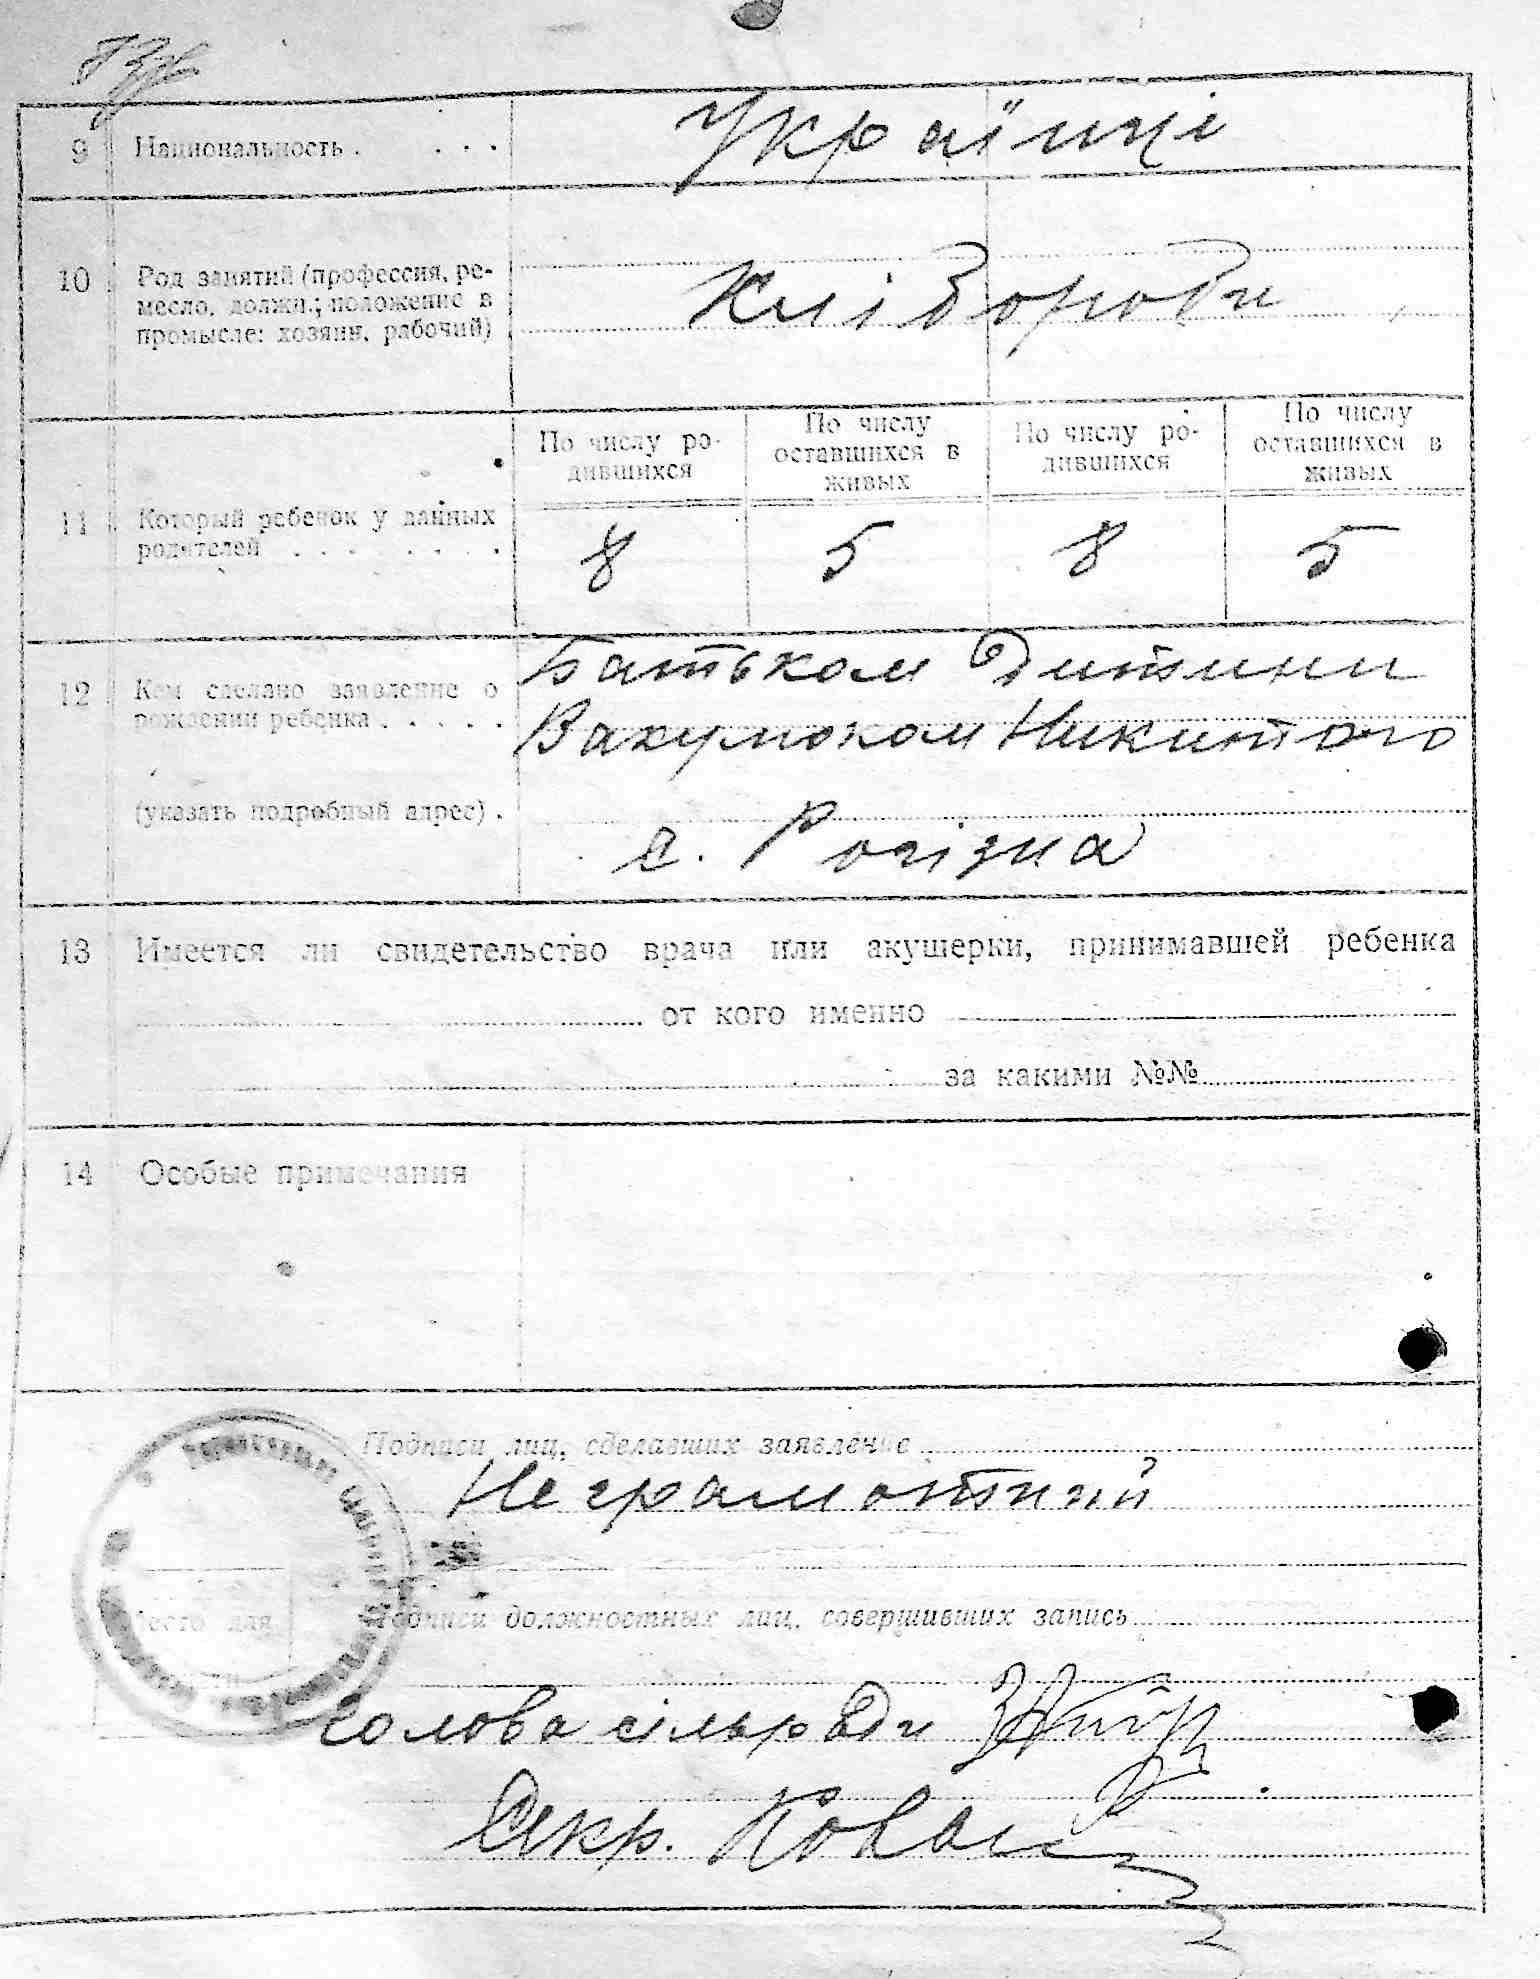 9 Национальность . . . . Українці
10 Род занятий (профессия, ре-
месло, должн.; положение в
промысле: хозяин, рабочий)
Хлібороби
По числу ро-
дившихся
По числу
оставшихся в
живых
По числу ро-
дившихся
По числу
оставшихся в
живых
11 Который ребенок у данных
родителей . . . . . . .
8 5 8 5
12 Кем сделано заявление о
рождении ребенка . . . . .
Батьком Дитини
Никитою
(указать подробный адрес) .
с. Рогізна
13 Имеется ли свидетельство врача или акушерки, принимавшей ребенка
от кого именно
за какими №№
14 Особые примечания
Подписи лиц, сделавших заявление
Неграмотний
Место для
Подписи должностных лиц, совершивших запись
Голова сільради
Секр.